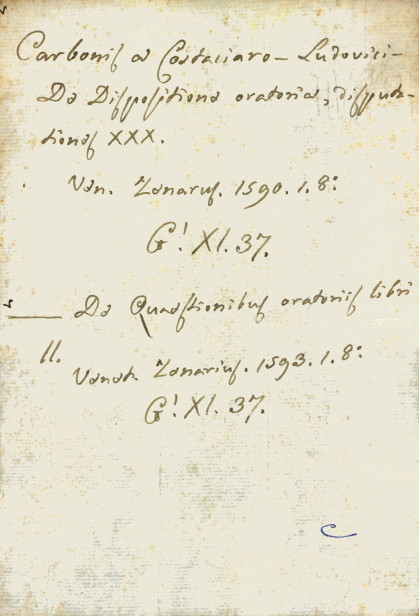 Carbonis a Costaciaro – Ludovici –
De Dispositione oratoria, disputa-
tiones XXX.
Ven. Zenarus. 1590. 1. 8:
G! XI. 37.
— De Quaestionibus oratoriis libri
II.
Venet. Zenarius. 1593. 1. 8:
G! XI. 37.